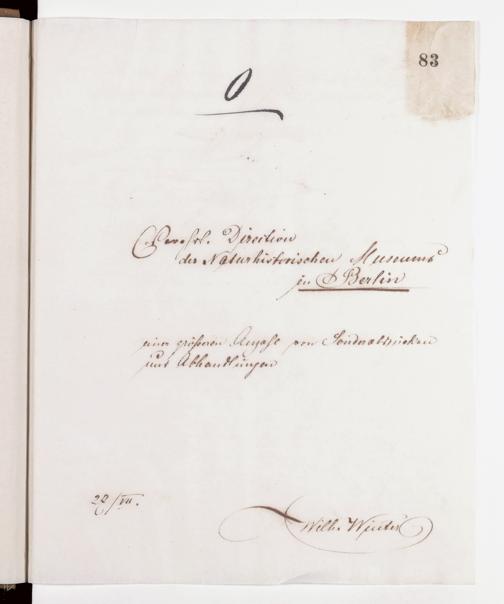 83
0
Verehrl. Direction
des Naturhistorischen Museums
in Berlin
einer größeren Anzahl von Sonderabdrücken
und Abhandlungen
22/VII.
Wilh. Winter